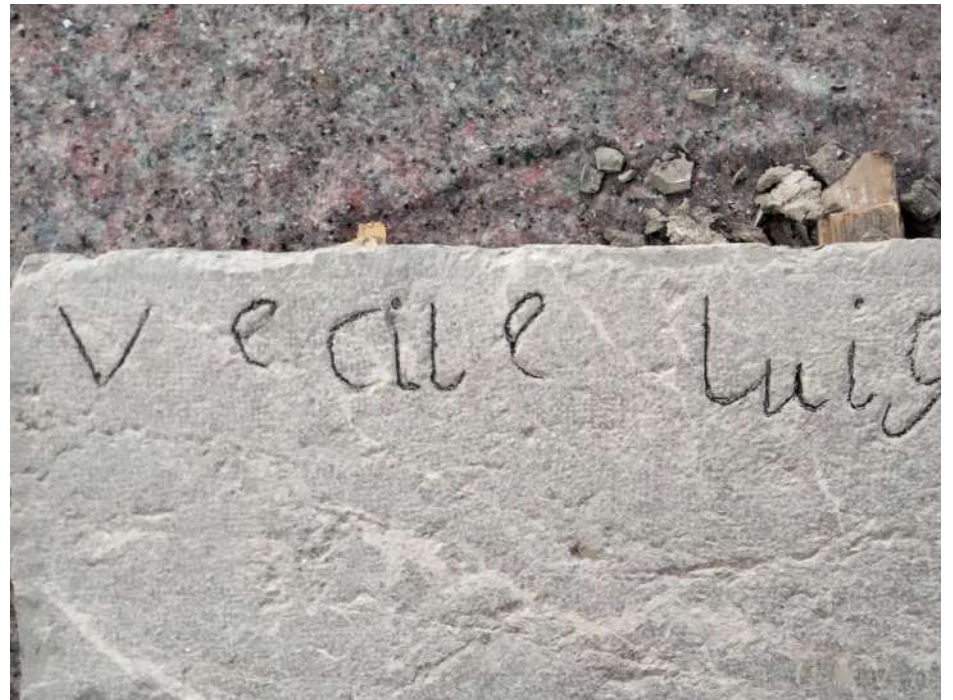 Vecile Luig